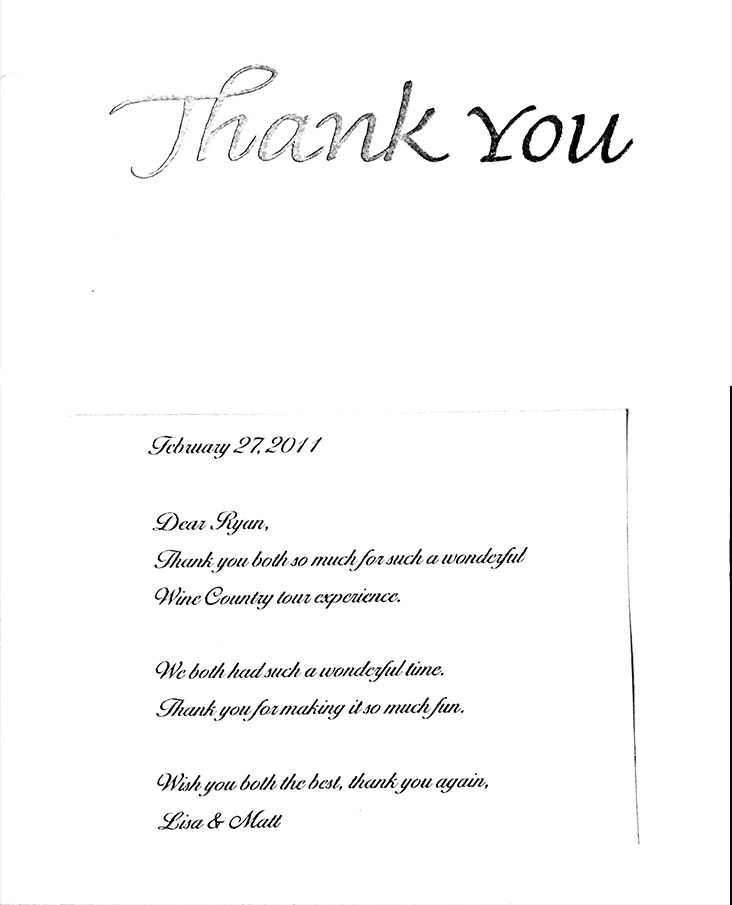 Thank You
February 27, 2011
Dear Ryan,
Thank you both so much for such a wonderful
Wine Country tour experience.
We both had such a wonderful time.
Thank you for making it so much fun.
Wish you both the best, thank you again,
Lisa & Matt